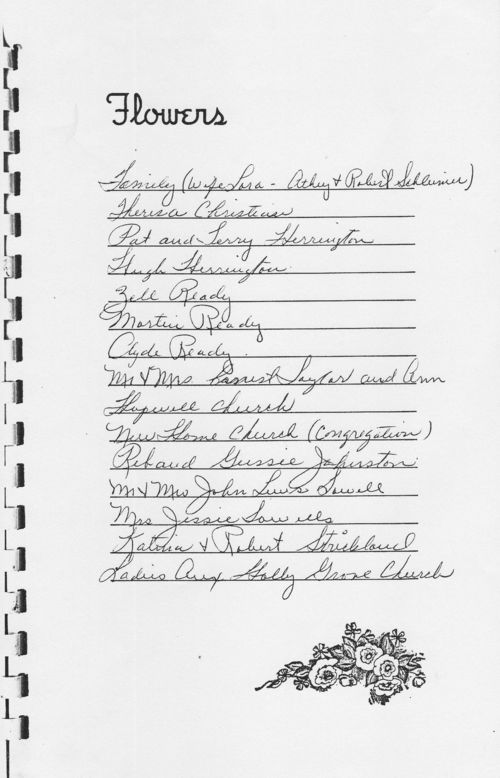 Flowers
Family (wife Lora - Athey & Robert Schleimer)
Theresa Christian
Pat and Terry Herrington
Hugh Herrington
Zell Ready
Martin Ready
Clyde Ready
Mr & Mrs Earnest Saylor and Ann
Hopewell church
New Home Church (Congregation)
Reb and Gussie Johnston
Mr & Mrs John Lewis Sowell
Mrs Jessie Sowells
Katrina & Robert Strickland
Ladies Aux Holly Grove Church